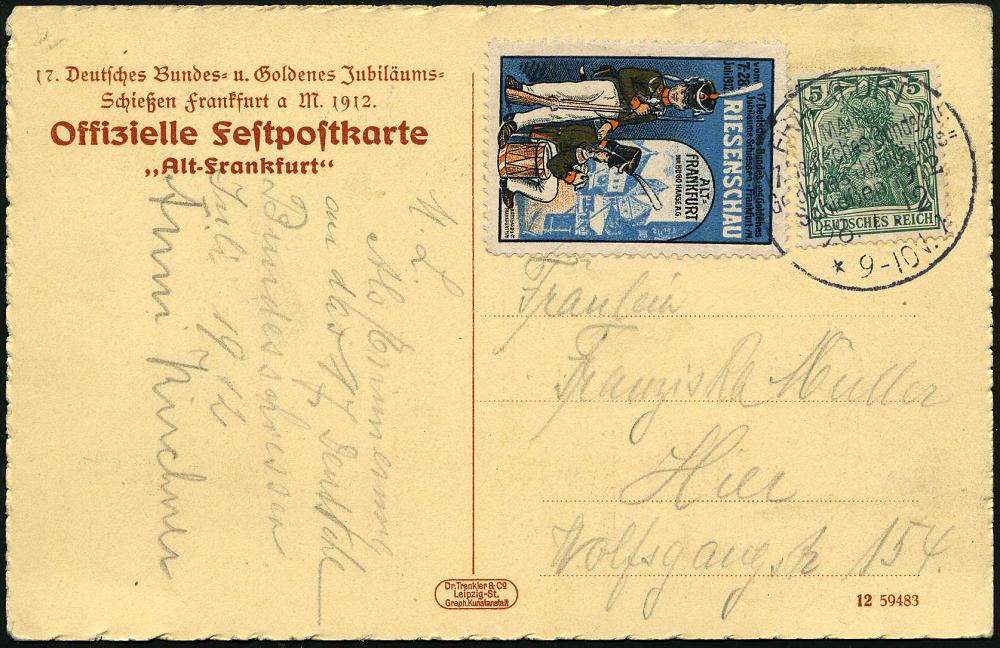 17. Deutsches Bundes- u. Goldenes Jubiläums-
Schießen Frankfurt a M. 1912.
Offizielle Festpostkarte
„Alt-Frankfurt“
M L
Als Erinnerung
an das 17. Deutsche
Bundesschiessen
Juli 1912
Anni Kirchner
vom
7.-28.
Juni 1912
17. Deutsches-Bundes- und Goldenes
Jubiläums-Schiessen - Frankfurt a/M.
RIESENSCHAU
ALT-
FRANKFURT
von HUGO HAASE A.G.
5 5
DEUTSCHES REICH
* 9-10V. *
Fräulein
Franziska Müller
Hier
Wolfsgangstr 154.
Dr. Trenkler & Co
Leipzig-St.
Graph. Kunstanstalt
12 59483